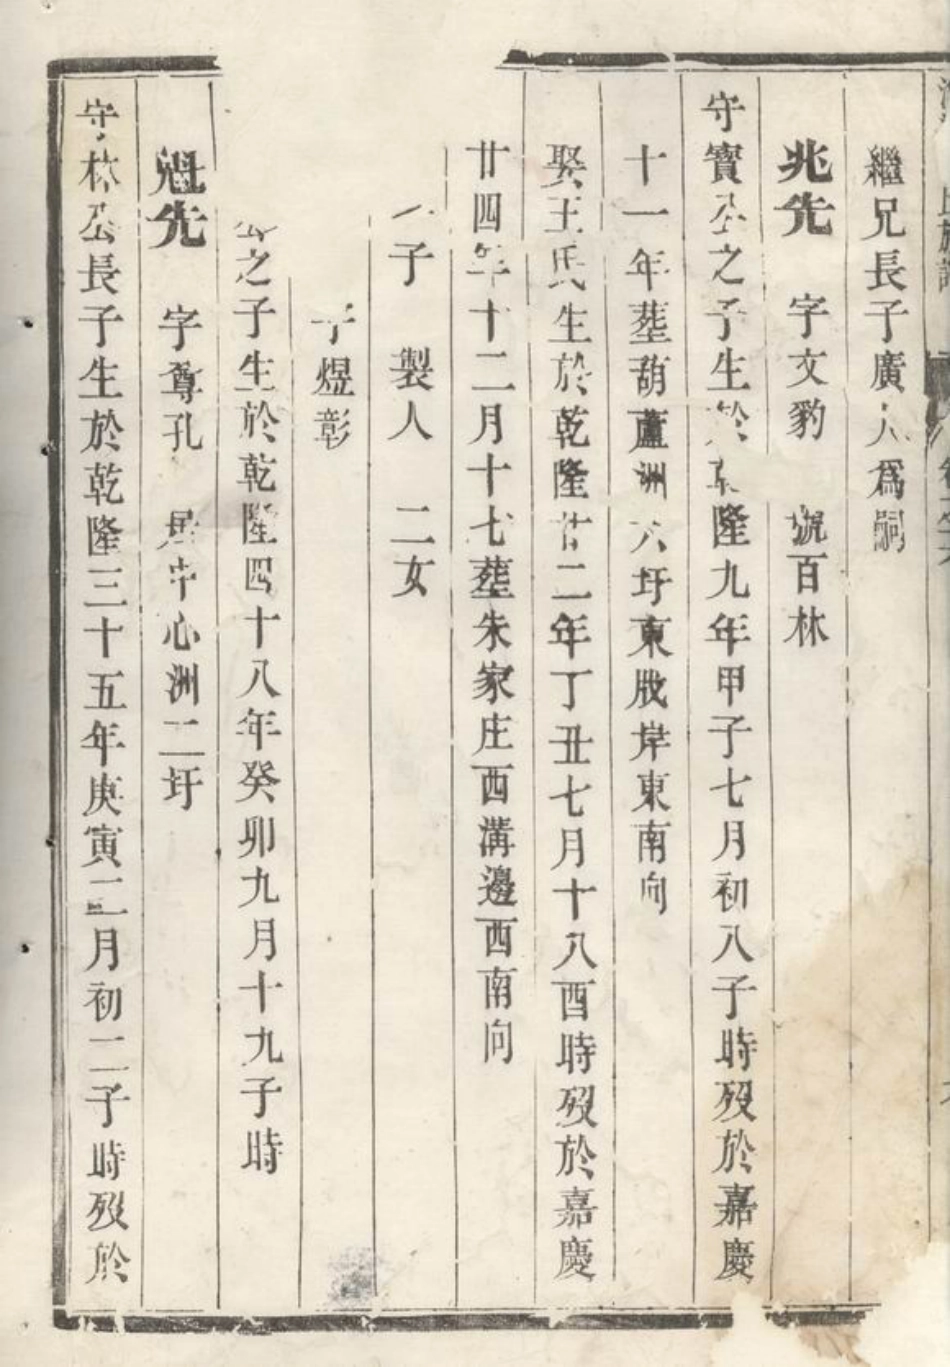 氏族譜
繼兄長子廣人爲嗣
兆先 字文豹 號百林
守寶公之子生於乾隆九年甲子七月初八子時歿於嘉慶
十一年塟葫蘆洲六圩東戙岸東南向
娶王氏生於乾隆廿二年丁丑七月十八酉時歿於嘉慶
廿四年十二月十七塟朱家庄西溝邊西南向
子 製人 二女
子煜彰
公之子生於乾隆四十八年癸卯九月十九子時
魁先 字尊孔 居中心洲二圩
守林公長子生於乾隆三十五年庚寅二月初二子時歿於